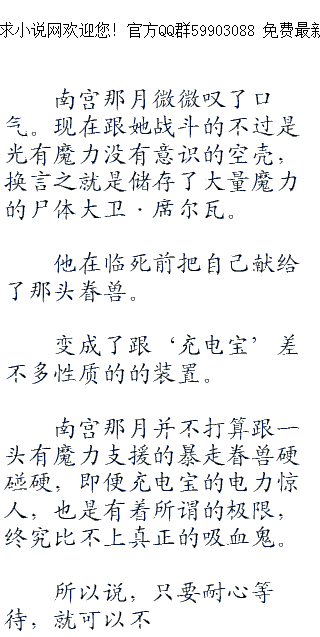 求小说网欢迎您！官方QQ群59903088 免费最新
南宫那月微微叹了口
气。现在跟她战斗的不过是
光有魔力没有意识的空壳，
换言之就是储存了大量魔力
的尸体大卫·席尔瓦。
他在临死前把自己献给
了那头眷兽。
变成了跟‘充电宝’差
不多性质的的装置。
南宫那月并不打算跟一
头有魔力支援的暴走眷兽硬
碰硬，即便充电宝的电力惊
人，也是有着所谓的极限，
终究比不上真正的吸血鬼。
所以说，只要耐心等
待，就可以不